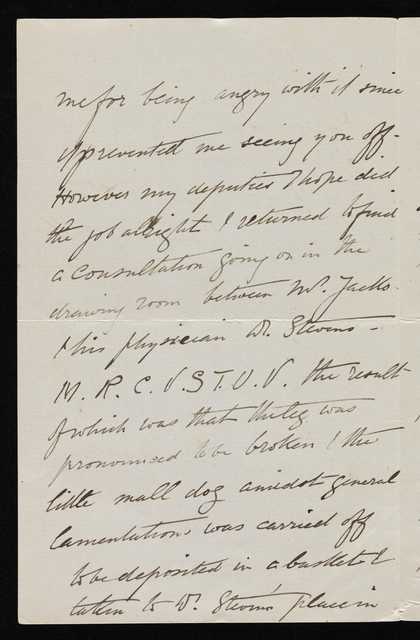 me for being angry with it since
it prevented me seeing you off -
However my deputies I hope did
the job allright I returned to find
a consultation going on in the
drawing room between Mr. Jacko
& his physician Dr. Stevens -
M. R. C. V. S. T. U. V. the result
of which was that the leg was
pronounced to be broken & the
little small dog amidst general
lamentations was carried off
to be deposited in a basket &
taken to Dr. Stevens' place in